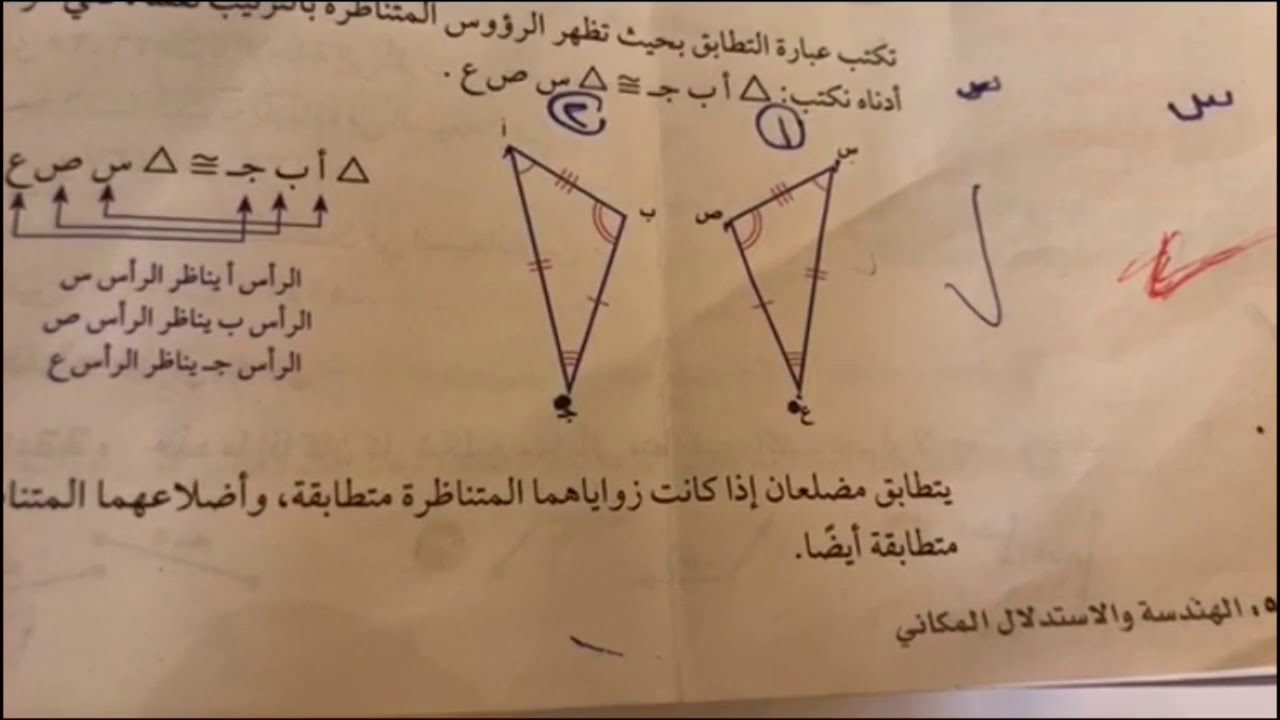 المتناظرة بالترتيب
تكتب عبارة التطابق بحيث تظهر الرؤوس
أدناه نكتب: △ أ ب جـ ≅ △ س ص ع .
س
س
١
٢
أ
ب
جـ
س
ص
ع
△ أ ب جـ ≅ △ س ص ع
الرأس أ يناظر الرأس س
الرأس ب يناظر الرأس ص
الرأس جـ يناظر الرأس ع
يتطابق مضلعان إذا كانت زواياهما المتناظرة متطابقة، وأضلاعهما
متطابقة أيضًا.
الهندسة والاستدلال المكاني